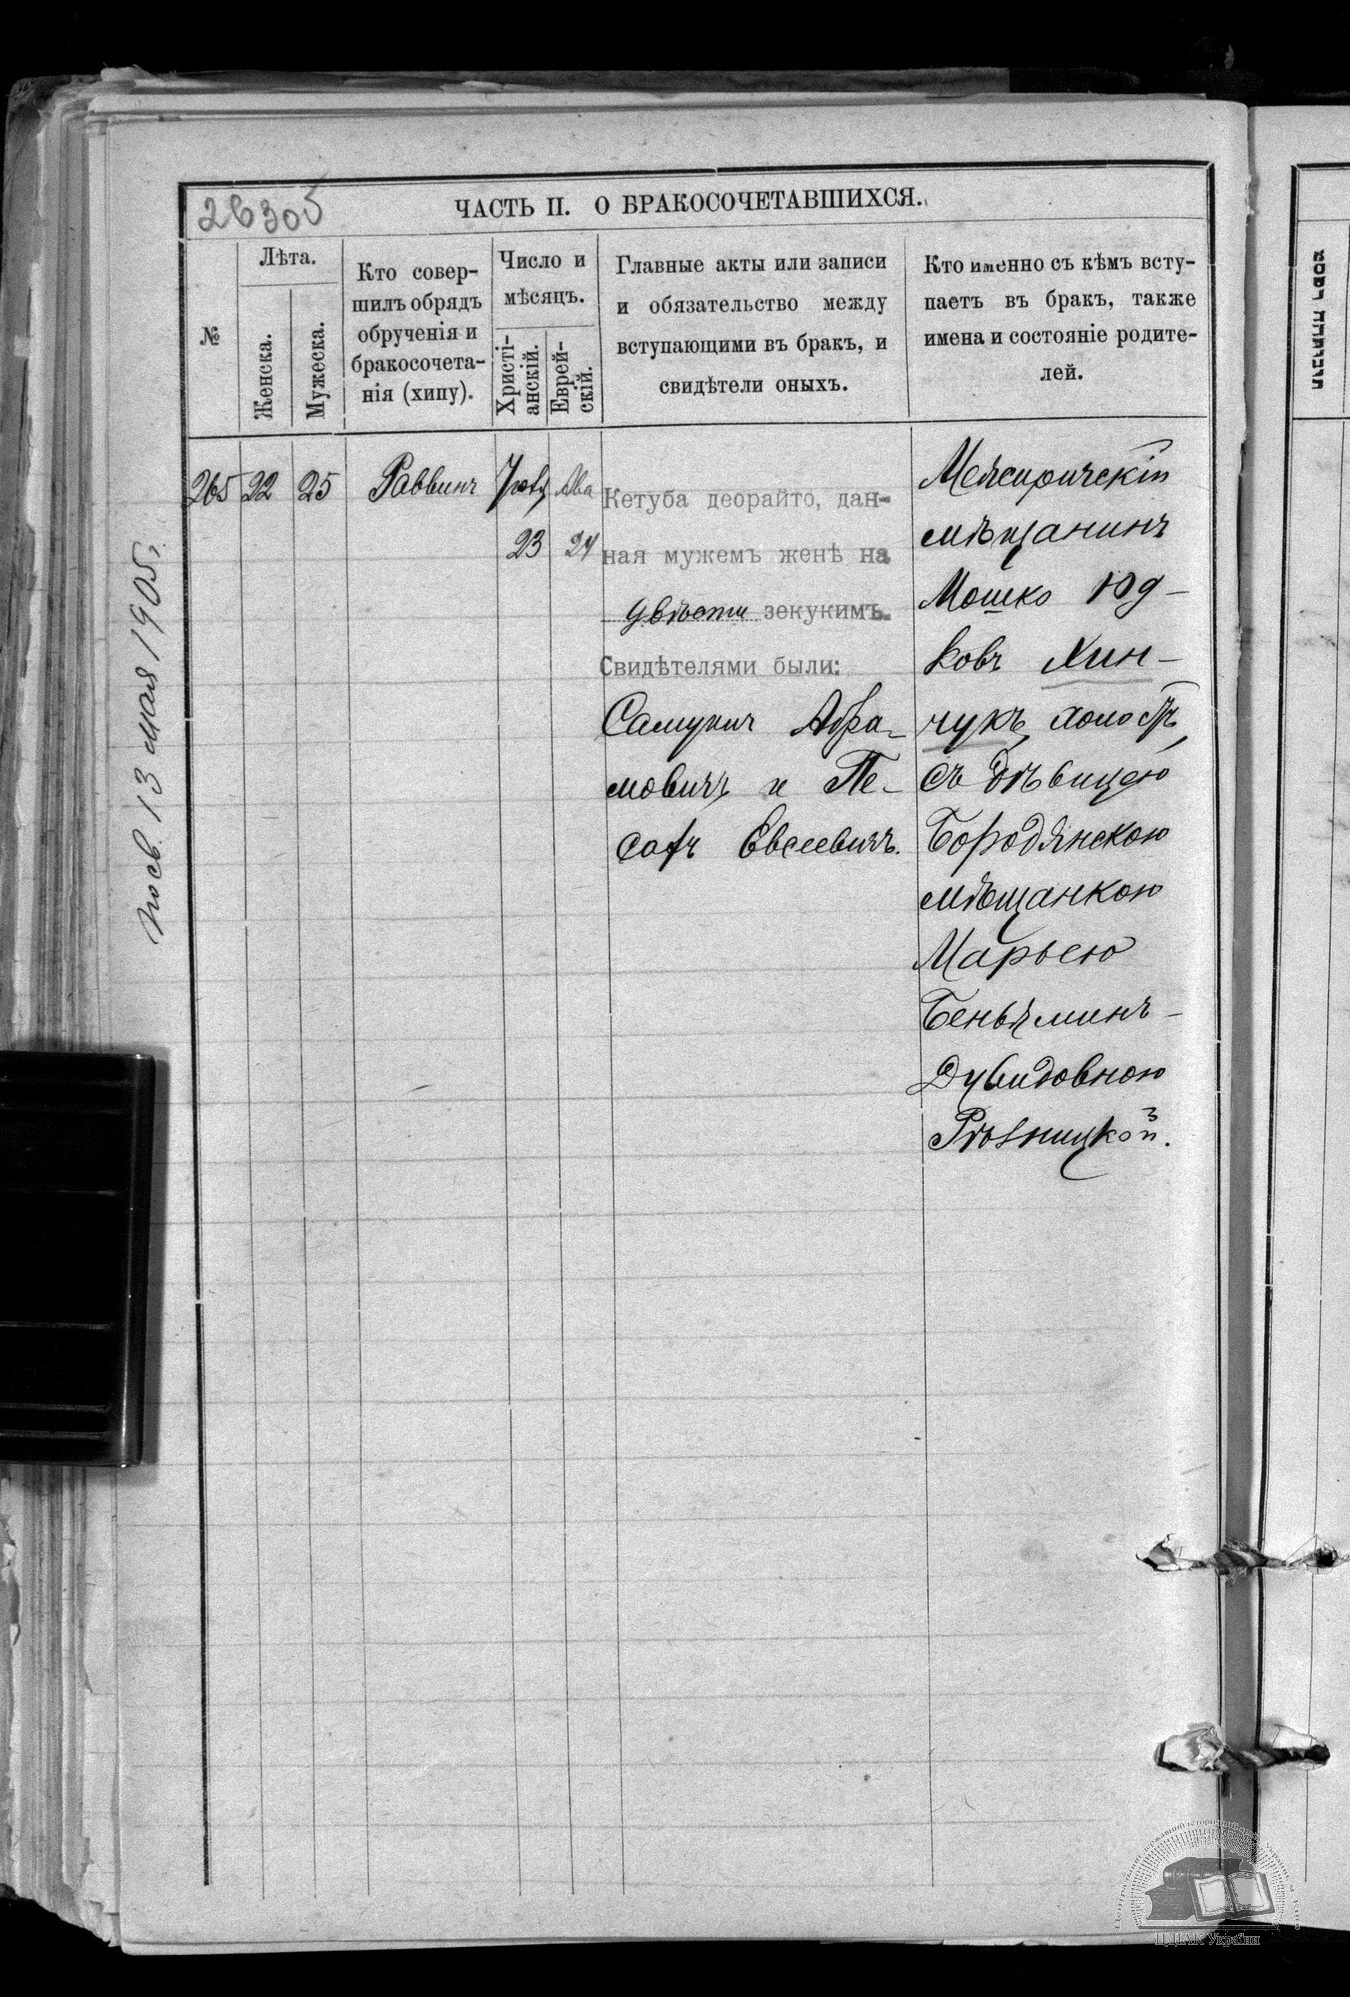 26305
ЧАСТЬ II. О БРАКОСОЧЕТАВШИХСЯ.
№
Лѣта.
Женска.
Мужеска.
Кто совер-
шилъ обрядъ
обрученія и
бракосочета-
нія (хипу).
Число и
мѣсяцъ.
Христі-
анскій.
Еврей-
скій.
Главные акты или записи
и обязательство между
вступающими въ бракъ, и
свидѣтели оныхъ.
Кто именно съ кѣмъ всту-
паетъ въ бракъ, также
имена и состояніе родите-
лей.
265
22
25
Раввинъ
23
Ава
24
Кетуба деорайто, дан-
ная мужемъ женѣ на
двѣсти зекукимъ.
Свидѣтелями были:
Самуилъ Абра-
мовичъ и Пе-
сахъ Евсеевичъ.
Межиричскій
мѣщанинъ
Мошко Юд-
ковъ Хин-
чукъ, холостъ,
съ дѣвицею
Бородянскою
мѣщанкою
Марьею
Беньяминъ-
Дувидовною
Рѣзницкой.
13 мая 1905 г.
ЦДІАК України